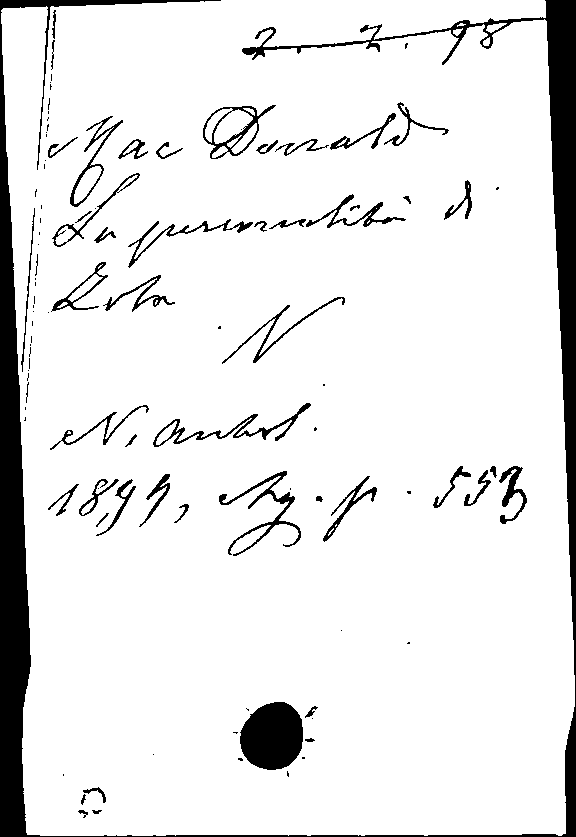 2. 2. 98
Mac Donald
La personalità di
Zola
N
N. Antol.
1899, Ag. p. 553